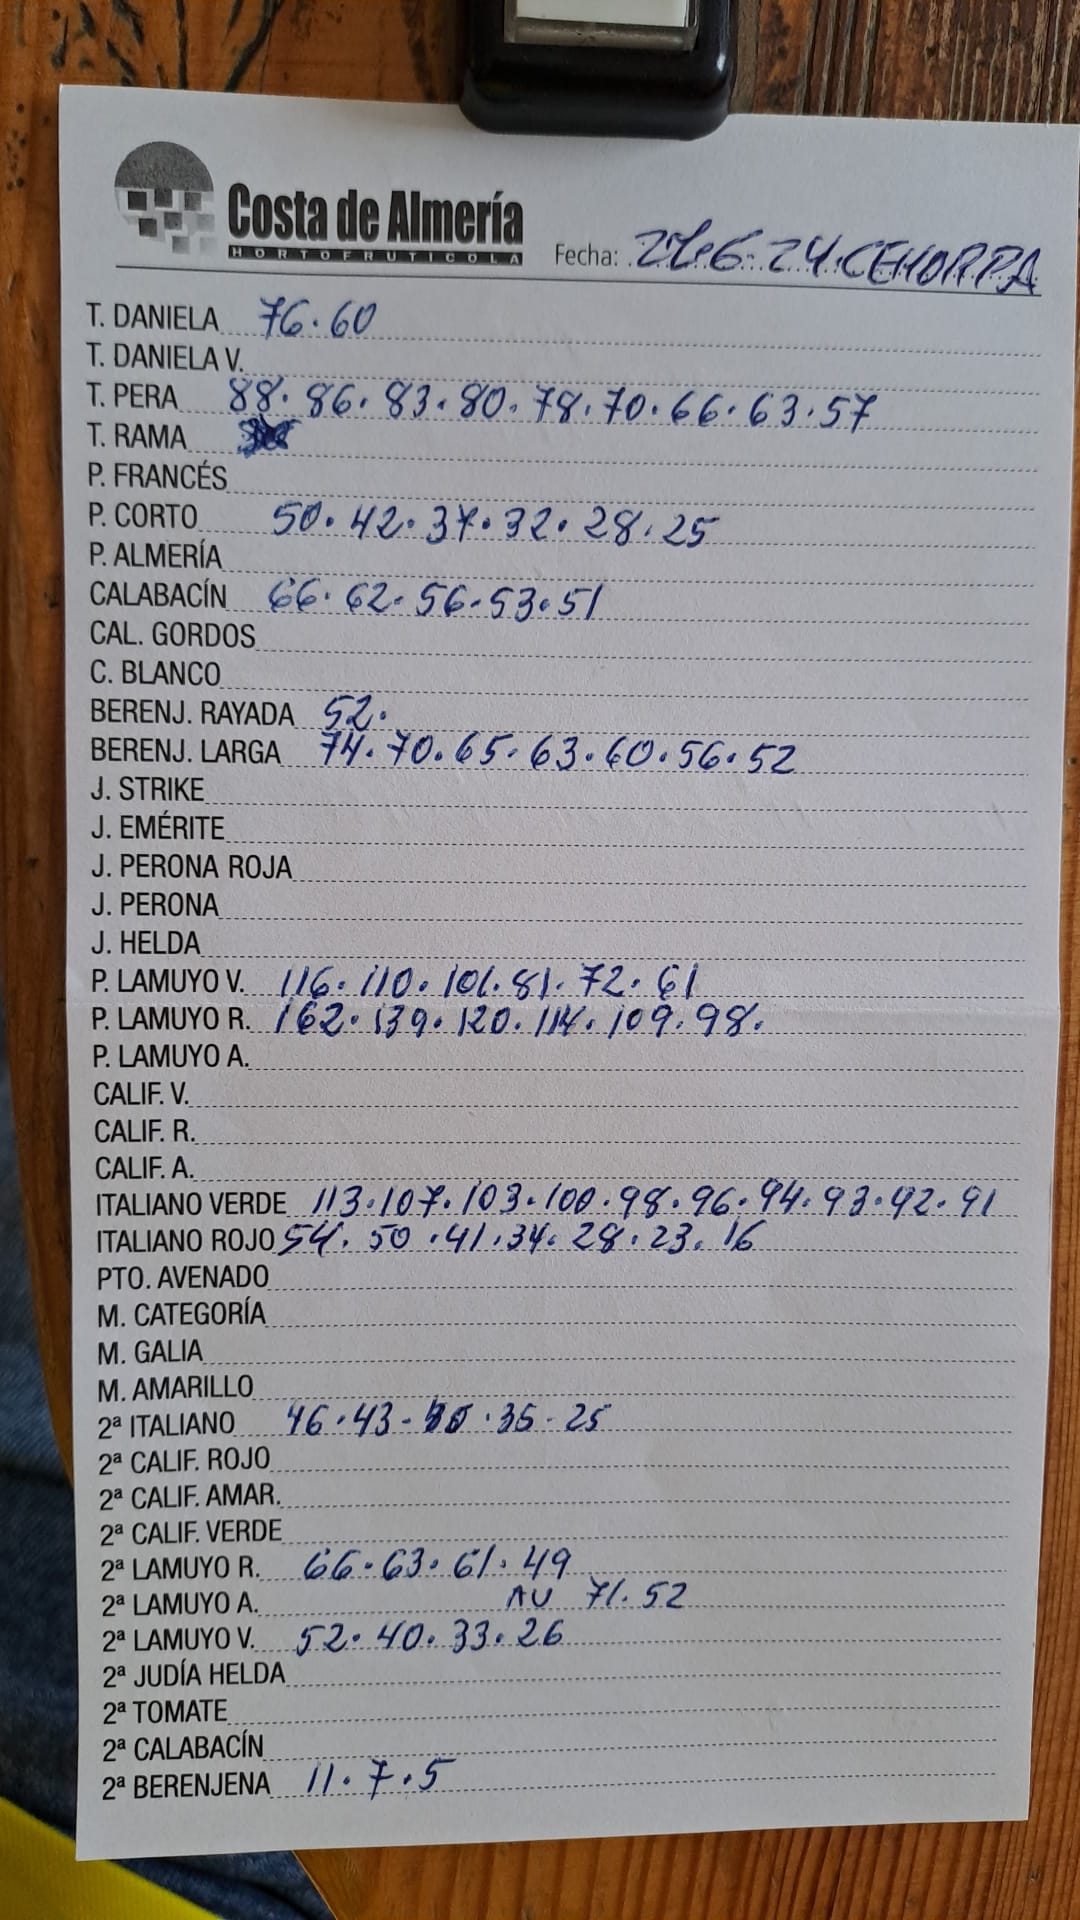 Costa de Almería
HORTOFRUTICOLA
Fecha: 27.6.24.CEHORPA
T. DANIELA 76.60
T. DANIELA V.
T. PERA 88.86.83.80.78.70.66.63.57
T. RAMA
P. FRANCÉS
P. CORTO 50.42.37.32.28.25
P. ALMERÍA
CALABACÍN 66.62.56.53.51
CAL. GORDOS
C. BLANCO
BERENJ. RAYADA 52.
BERENJ. LARGA 74.70.65.63.60.56.52
J. STRIKE
J. EMÉRITE
J. PERONA ROJA
J. PERONA
J. HELDA
P. LAMUYO V. 116.110.101.81.72.61
P. LAMUYO R. 162.139.120.114.109.98.
P. LAMUYO A.
CALIF. V.
CALIF. R.
CALIF. A.
ITALIANO VERDE 113.107.103.100.98.96.94.93.92.91
ITALIANO ROJO 54.50.41.34.28.23.16
PTO. AVENADO
M. CATEGORÍA
M. GALIA
M. AMARILLO
2ª ITALIANO 46.43- .35-25
2ª CALIF. ROJO
2ª CALIF. AMAR.
2ª CALIF. VERDE
2ª LAMUYO R. 66.63.61.49
2ª LAMUYO A. AU 71.52
2ª LAMUYO V. 52.40.33.26
2ª JUDÍA HELDA
2ª TOMATE
2ª CALABACÍN
2ª BERENJENA 11.7.5